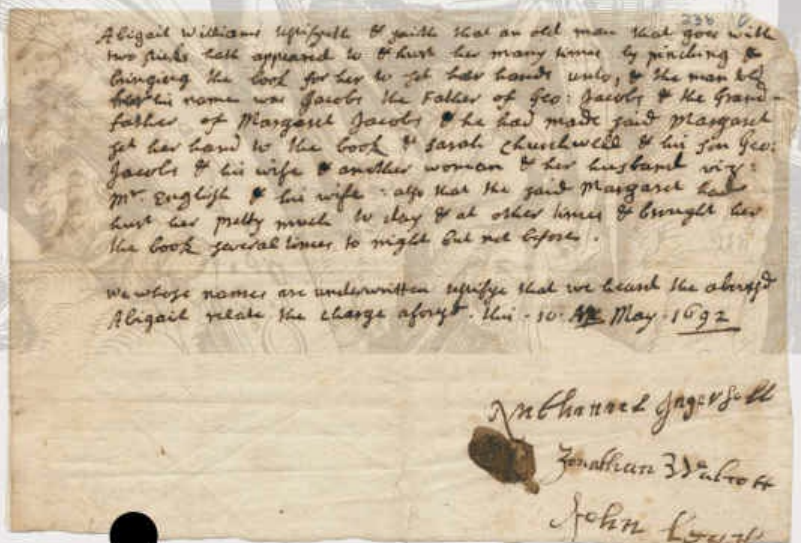 238
Abigail Williams testifyeth & saith that an old man that goes with
two sticks hath appeared to & hurt her many times by pinching &
bringing the book for her to set her hands unto, & the man told
her his name was Jacobs the Father of Geo: Jacobs & the Grand-
father of Margaret Jacobs & he had made said Margaret
set her hand to the book & Sarah Churchwell & his son Geo:
Jacobs & his wife & another woman & her husband viz:
Mr. English & his wife: also that the said Margaret had
hurt her pretty much to day & at other times & brought her
the book several times to night but not before.
we whose names are underwritten testifye that we heard the abovesd
Abigail relate the charge aforesd. this 10 May 1692
Nathanael Ingersoll
Jonathan Walcott
John